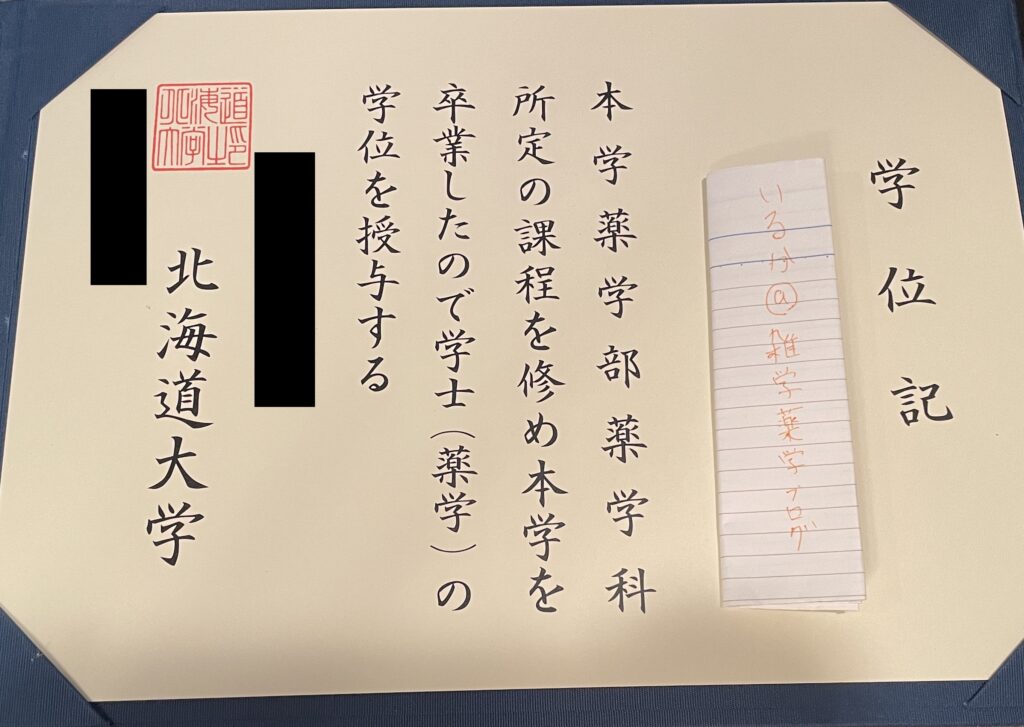 学位記
いるか@雑学薬学ブログ
本学薬学部薬学科
所定の課程を修め本学を
卒業したので学士(薬学)の
学位を授与する
北海道大学
北海道大学之印